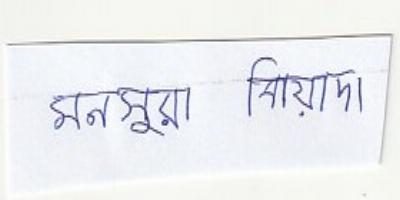 মনসুরা রিয়াদা